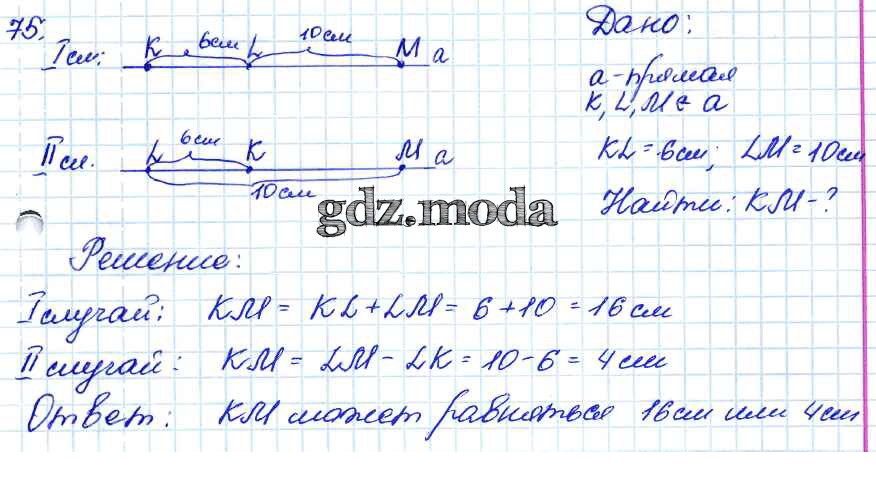 75.
I сл: K 6см L 10см M a
II сл. L 6см K M a
10см
Дано:
a - прямая
K, L, M ∈ a
KL = 6см; LM = 10см
Найти: KM - ?
gdz.moda
Решение:
I случай: KM = KL + LM = 6 + 10 = 16 см
II случай: KM = LM - LK = 10 - 6 = 4 см
Ответ: KM может равняться 16 см или 4 см